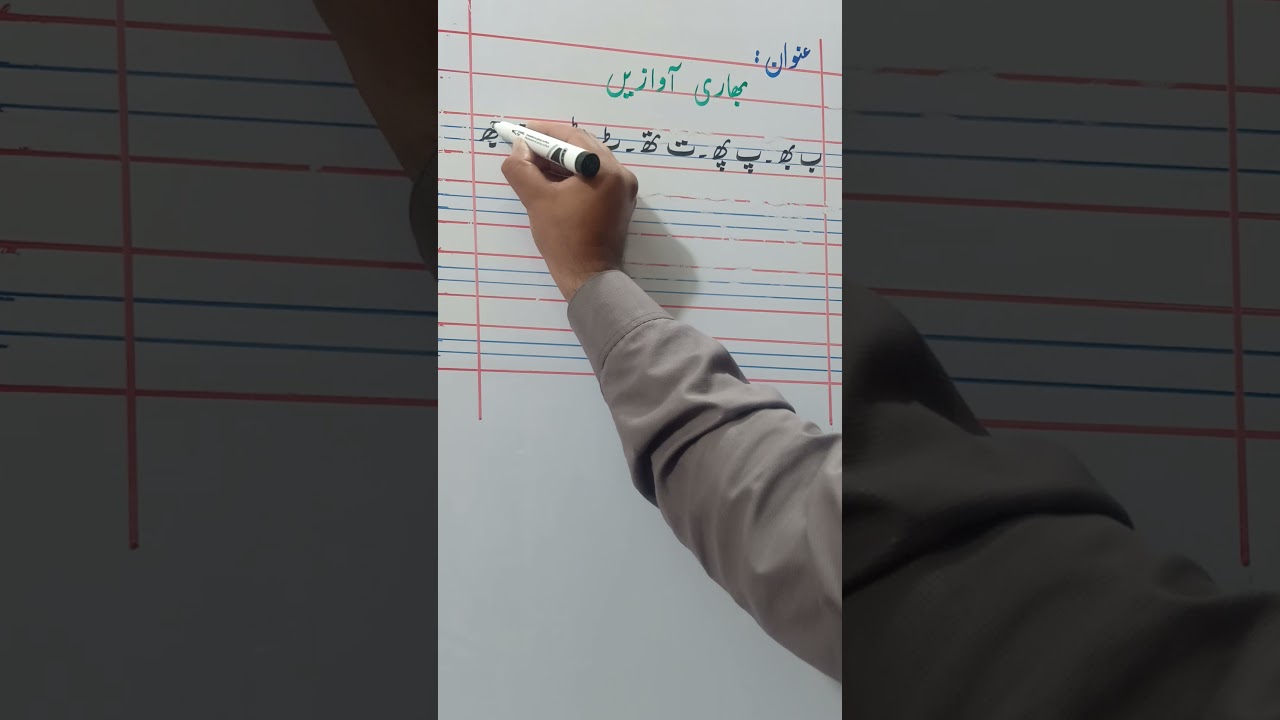 عنوان :
بھاری آوازیں
ب بھ ۔ پ پھ ۔ ت تھ ۔ ٹ